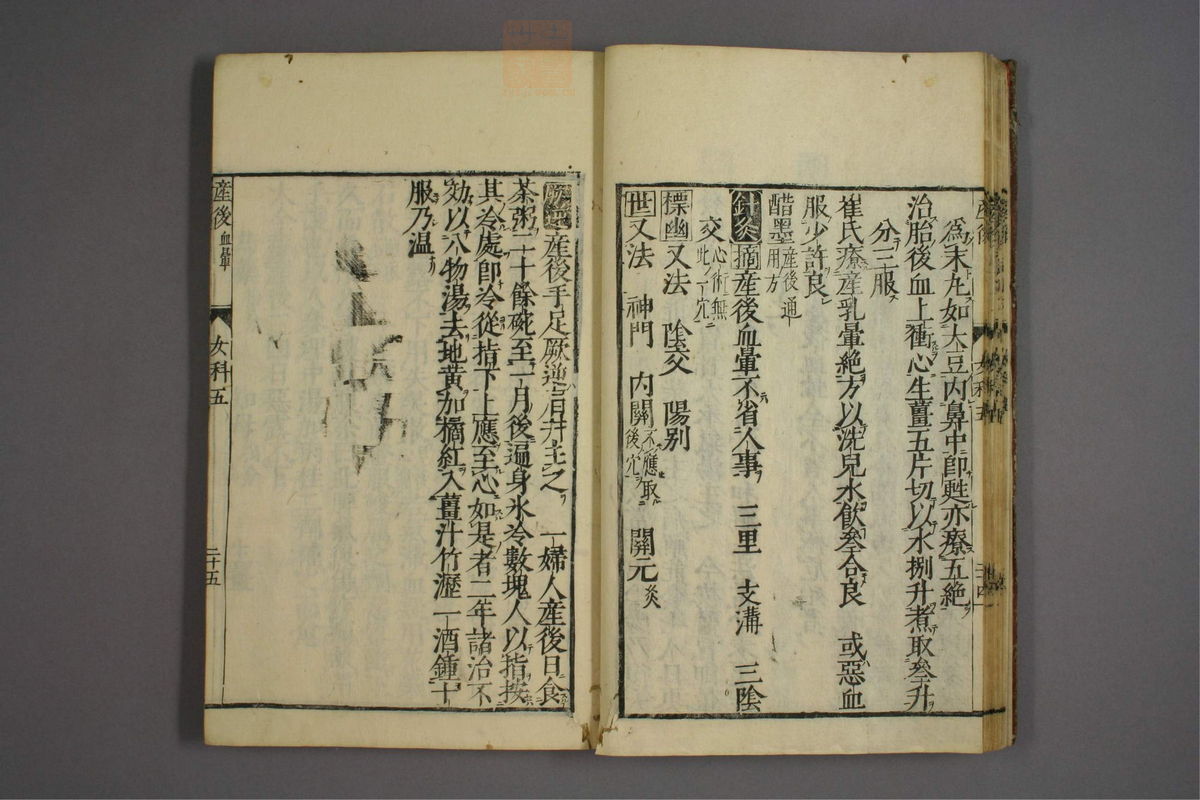 爲末丸如大豆内鼻中即甦亦療五絶
治胎後血上衝心生薑五片切以水捌升煮取叄升
分三服
崔氏療産乳暈絶方以洗兒水飲叄合良　或惡血
服少許良
醋墨産後通用方
針灸　摘産後血暈不省人事　三里　支溝　三陰
交此穴心術無
標幽又法　陰交　陽别
世又法　神門　内關不應取後穴　關元灸
産後手足厥逆　主之　一婦人産後日食
茶粥二十餘碗至一月後遍身氷冷數塊人以指按
其冷處即冷從指下上應至心如是者二年諸治不
効以八物湯去地黄加橘紅入薑汁竹瀝一酒鍾十
服乃温
産後　血暈
女科五
二十五